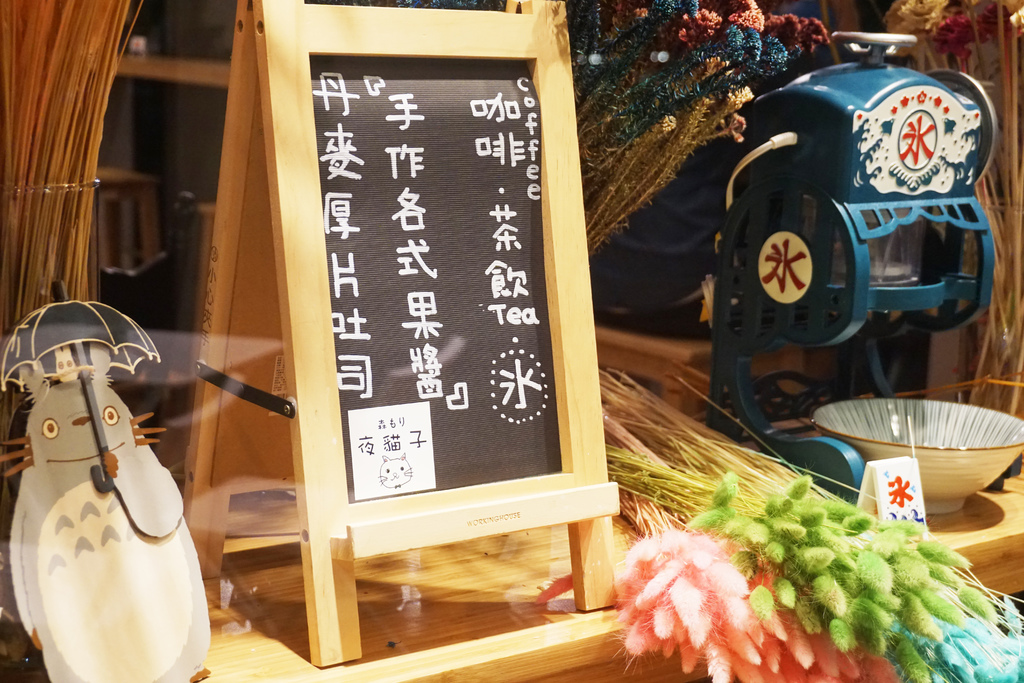 coffee
咖啡·茶飲Tea·氷
『手作各式果醬』
丹麥厚片吐司
森もり
夜貓子
WORKINGHOUSE
氷
氷
氷